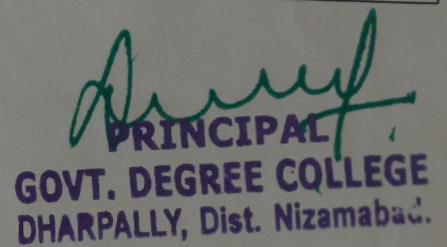 PRINCIPAL
GOVT. DEGREE COLLEGE
DHARPALLY, Dist. Nizamabad.